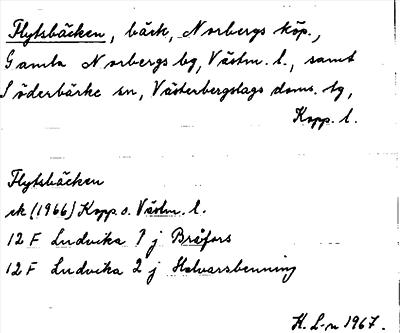 Flytsbäcken, bäck, Norbergs köp.,
Gamla Norbergs bg, Västm. l., samt
Söderbärke sn, Västerbergslags doms. tg,
Kopp. l.
Flytsbäcken
ek (1966) Kopp. o. Västm. l.
12 F Ludvika 1 j Bråfors
12 F Ludvika 2 j Halvarsbenning
H. L-n 1967.